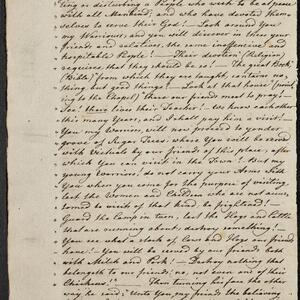 ting or disturbing a People who wish to be at peace
with all Mankind, and who have devoted them-
selves to serve their God! — Look around you
my Warriors, and you will discover in them your
friends and relatives, the same inoffensive and
hospitable People! — Their devotion (Religion)
requires, that they should be so! — The great Book
(Bible) from which they are taught, contains no-
thing, but good things! — Look at that house! (point-
ing to the Chapel) There our friends meet to pray! —
There lives their Teacher! — We know each other
this many Years, and I shall pay him a visit! —
You my Warriors, will now proceed to yonder
grove of Sugar Trees, where You will be served
with Victuals by our friends of this place, after
which You can visit in the Town! But my
young Warriors, do not carry your Arms with
You when you come for the purpose of visiting
lest the Women and Children who are not accus-
tomed to sights of that kind, be frightened! —
Guard the Camp in turn, lest the Hogs and Cattle
that are running about, destroy something. —
You see what a stock of Cows and Hogs our friends
have! — You will be served by our friends both
with Milk and Pork! — Destroy nothing that
belongs to our friends; no, not even one of their
Chickens! — Then turning himself the other
way he said; "Unto You my friends the believing